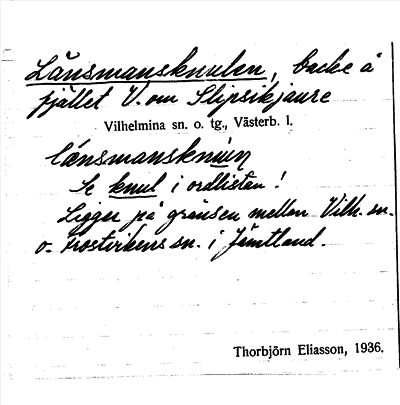 Länsmansknulen, backe å
fjället V. om Slipsikjaure
Vilhelmina sn. o. tg., Västerb. l.
länsmansknúln
Se knul i ordlistan!
Ligger på gränsen mellan Vilh. sn.
o. Frostvikens sn. i Jämtland.
Thorbjörn Eliasson, 1936.